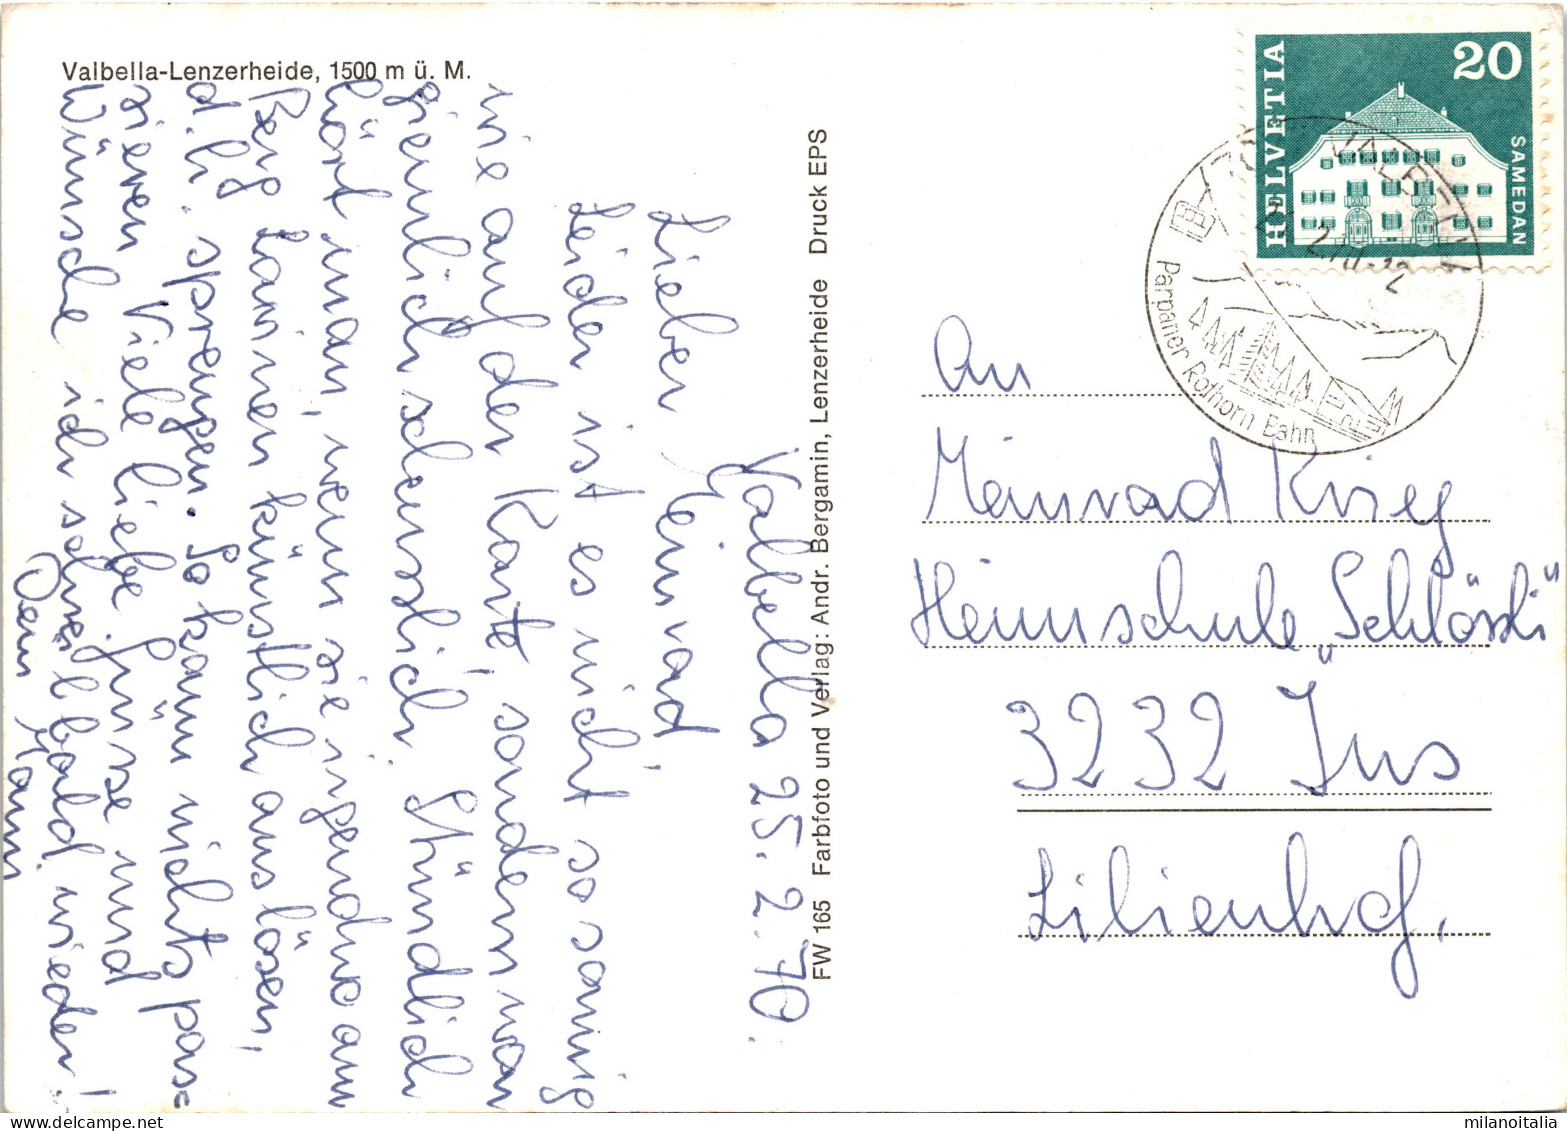 Valbella-Lenzerheide, 1500 m ü. M.
Valbella 25. 2. 70.
Lieber Meinrad
Leider ist es nicht so sonnig
wie auf der Karte, sondern war
ziemlich scheusslich. Stündlich
hört man, wenn sie irgendwo am
Berg Lawinen künstlich auslösen,
d.h. sprengen. So kann nichts pas=
sieren. Viele liebe Grüsse und
Wünsche ich schreibe bald wieder!
Dein
FW 165 Farbfoto und Verlag: Andr. Bergamin, Lenzerheide Druck EPS
HELVETIA
20
SAMEDAN
VALBELLA
Parpaner Rothorn Bahn
An
Meinrad Krieg
Heimschule „Schlössli"
3232 Ins
Lilienhof.
milanoitalia